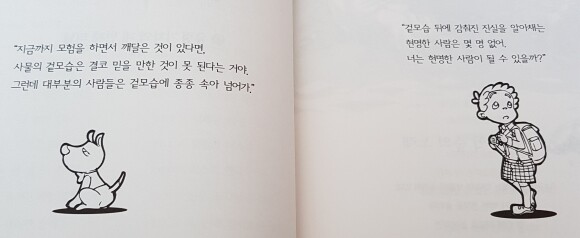 "지금까지 모험을 하면서 깨달은 것이 있다면,
사물의 겉모습은 결코 믿을 만한 것이 못 된다는 거야.
그런데 대부분의 사람들은 겉모습에 종종 속아 넘어가."
"겉모습 뒤에 감춰진 진실을 알아채는
현명한 사람은 몇 명 없어.
너는 현명한 사람이 될 수 있을까?"